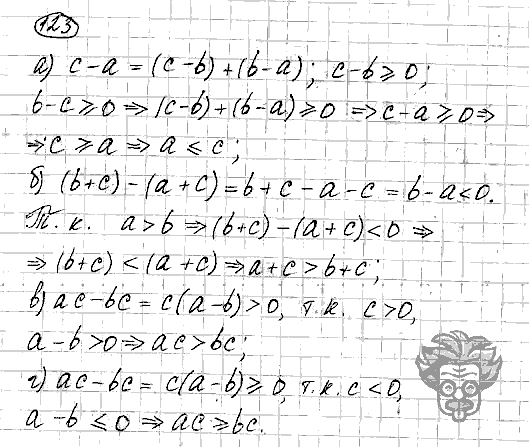 123
а) c-a = (c-b)+(b-a); c-b⩾0;
b-c⩾0 ⇒ (c-b)+(b-a)⩾0 ⇒ c-a⩾0 ⇒
⇒ c⩾a ⇒ a⩽c;
б) (b+c)-(a+c)=b+c-a-c=b-a<0.
Т.к. a>b ⇒ (b+c)-(a+c)<0 ⇒
⇒ (b+c)<(a+c) ⇒ a+c>b+c;
в) ac-bc = c(a-b)>0, т.к. c>0,
a-b>0 ⇒ ac>bc;
г) ac-bc = c(a-b)⩾0, т.к. c<0,
a-b⩽0 ⇒ ac⩾bc.